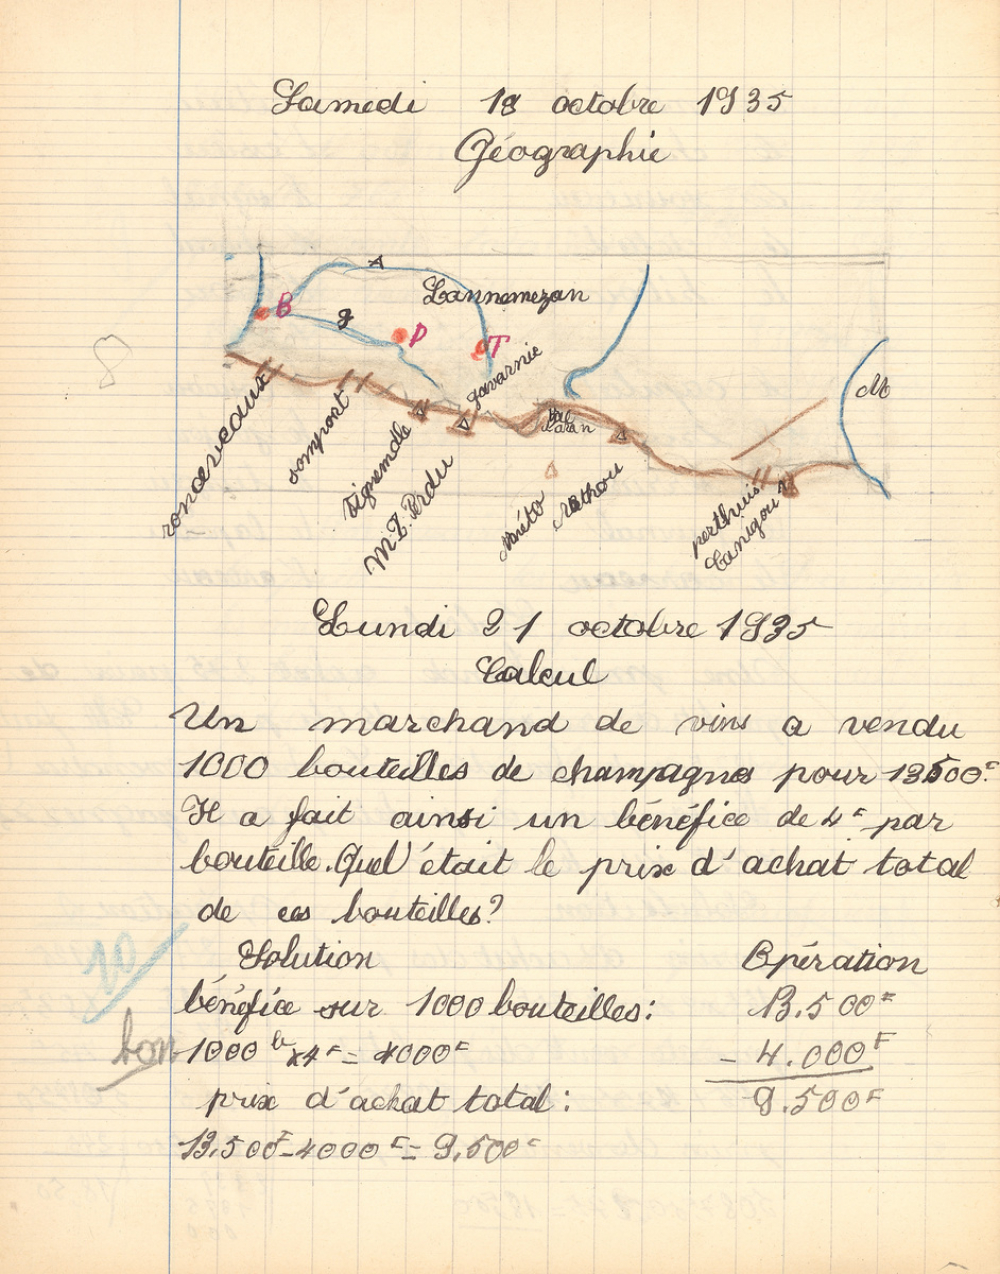 Samedi 18 octobre 1935
Géographie
A
Lannemezan
B
g
P
T
gavarnie
M
Val
Aran
roncevaux
somport
Vignemale
Mt Perdu
Néthou
perthuis
Canigou
Lundi 21 octobre 1935
Calcul
Un marchand de vins a vendu
1000 bouteilles de champagnes pour 13500F.
Il a fait ainsi un bénéfice de 4F par
bouteille. Quel était le prix d'achat total
de ces bouteilles?
10
Solution Opération
bénéfice sur 1000 bouteilles: 13.500F
bon
1000 b x4F = 4000F - 4.000F
prix d'achat total: 9.500F
13.500F-4000F= 9.500F